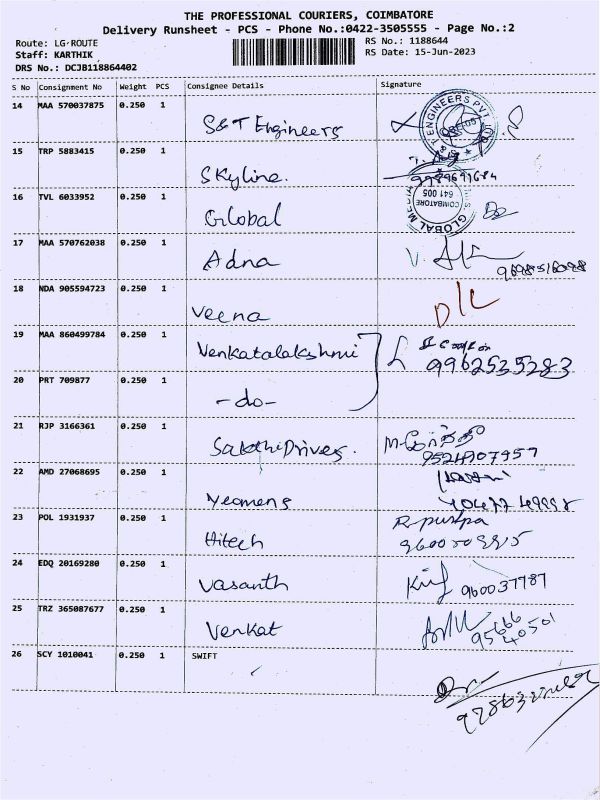 THE PROFESSIONAL COURIERS, COIMBATORE
Delivery Runsheet - PCS - Phone No.:0422-3505555 - Page No.:2
Route: LG-ROUTE
Staff: KARTHIK
DRS No.: DCJB118864402
RS No.: 1188644
RS Date: 15-Jun-2023
S No Consignment No Weight PCS Consignee Details Signature
14 MAA 570037875 0.250 1 S&T Engineers
ENGINEERS PVT. LTD
15 TRP 5883415 0.250 1 Skyline.
16 TVL 6033952 0.250 1 Global
GLOBAL COIMBATORE 641 005
17 MAA 570762038 0.250 1 Adna
18 NDA 905594723 0.250 1 Veena D/L
19 MAA 860499784 0.250 1 Venkatalakshmi 9962535283
20 PRT 709877 0.250 1 -do-
21 RJP 3166361 0.250 1 Sakthi Drives.
22 AMD 27068695 0.250 1 Yeomens
23 POL 1931937 0.250 1 Hitech R. puspa
24 EDQ 20169280 0.250 1 Vasanth
25 TRZ 365087677 0.250 1 Venkat
26 SCY 1010041 0.250 1 SWIFT